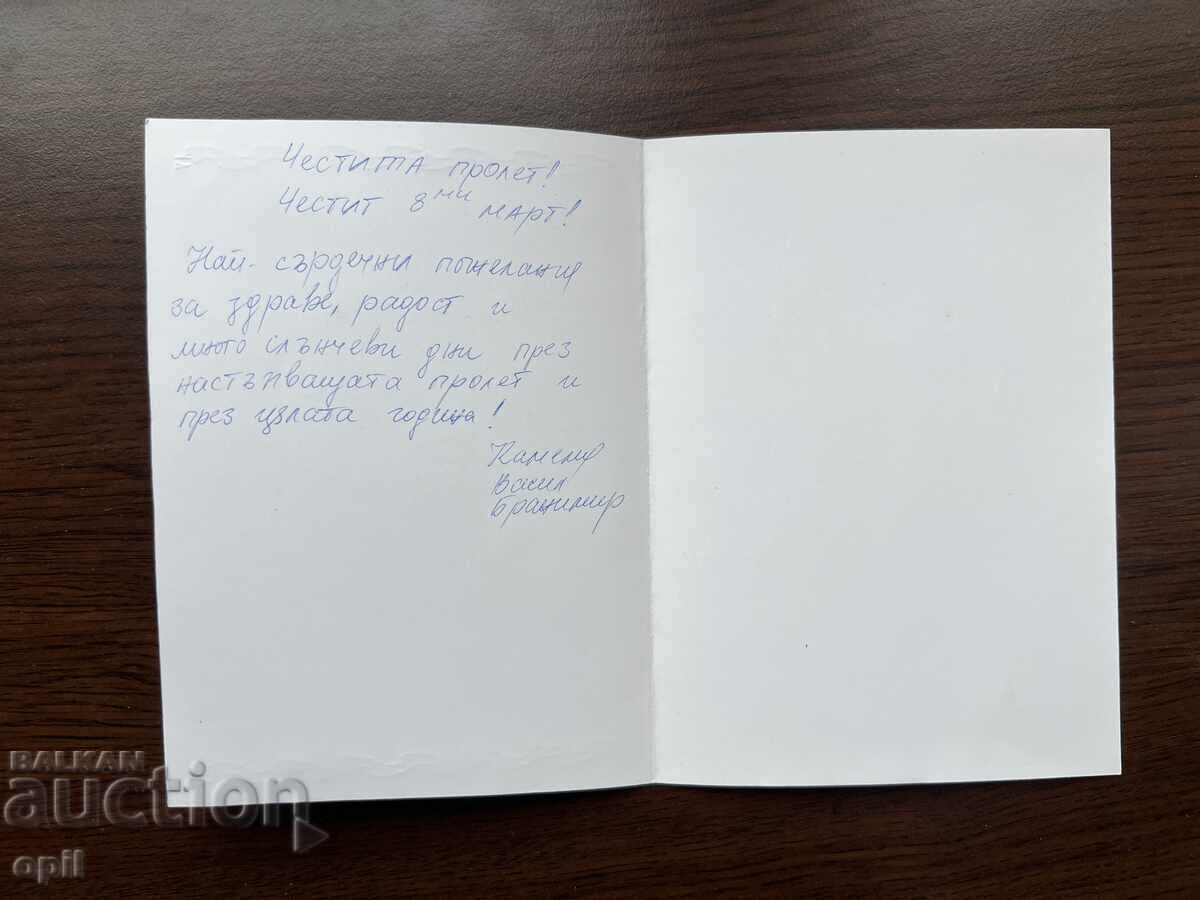 Честита пролет!
Честит 8ми март!
Най-сърдечни пожелания
за здраве, радост и
много слънчеви дни през
настъпващата пролет и
през цялата година!
Камелия
Васил
Бранимир
BALKAN
auction
opil